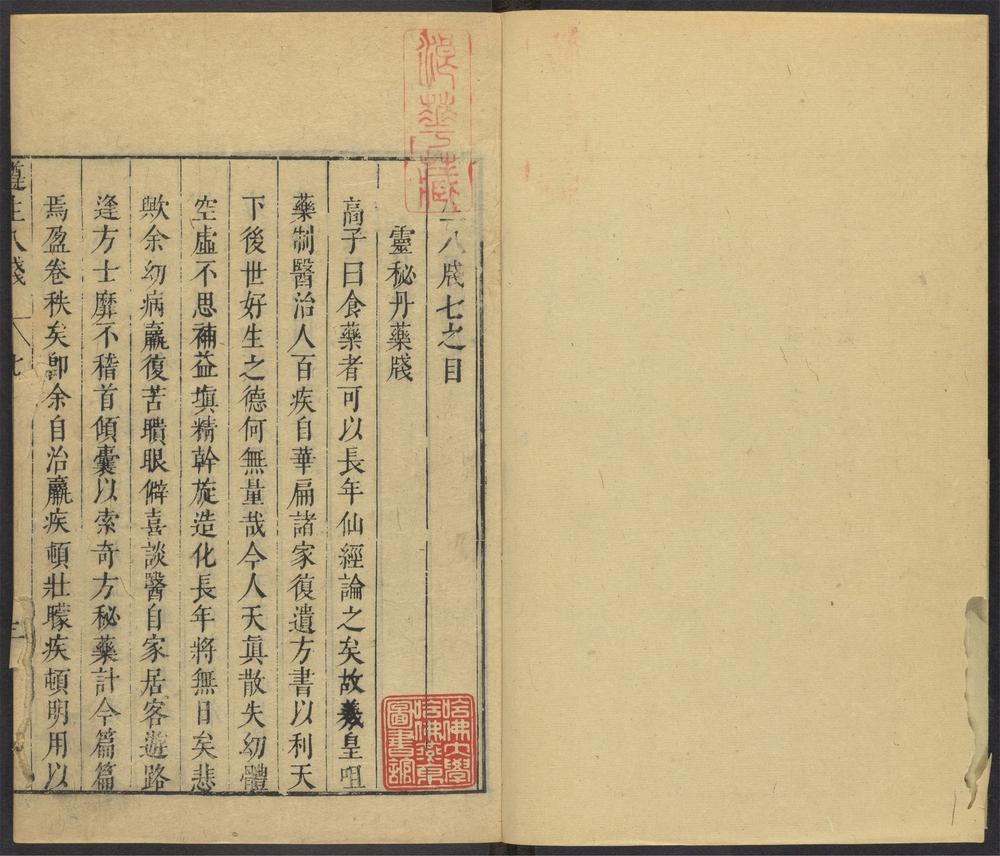 八牋七之目
靈秘丹藥牋
高子曰食藥者可以長年仙經論之矣故羲皇咀
藥制醫治人百疾自華扁諸家復遺方書以利天
下後世好生之德何無量哉今人天眞散失幼體
空虛不思補益塡精斡旋造化長年將無日矣悲
歟余幼病羸復苦瞶眼僻喜談醫自家居客遊路
逢方士靡不稽首傾囊以索奇方秘藥計今篇篇
焉盈卷秩矣卽余自治羸疾頓壯矇疾頓明用以
八牋
七
三
華藏
哈佛大學
哈佛燕京
圖書館